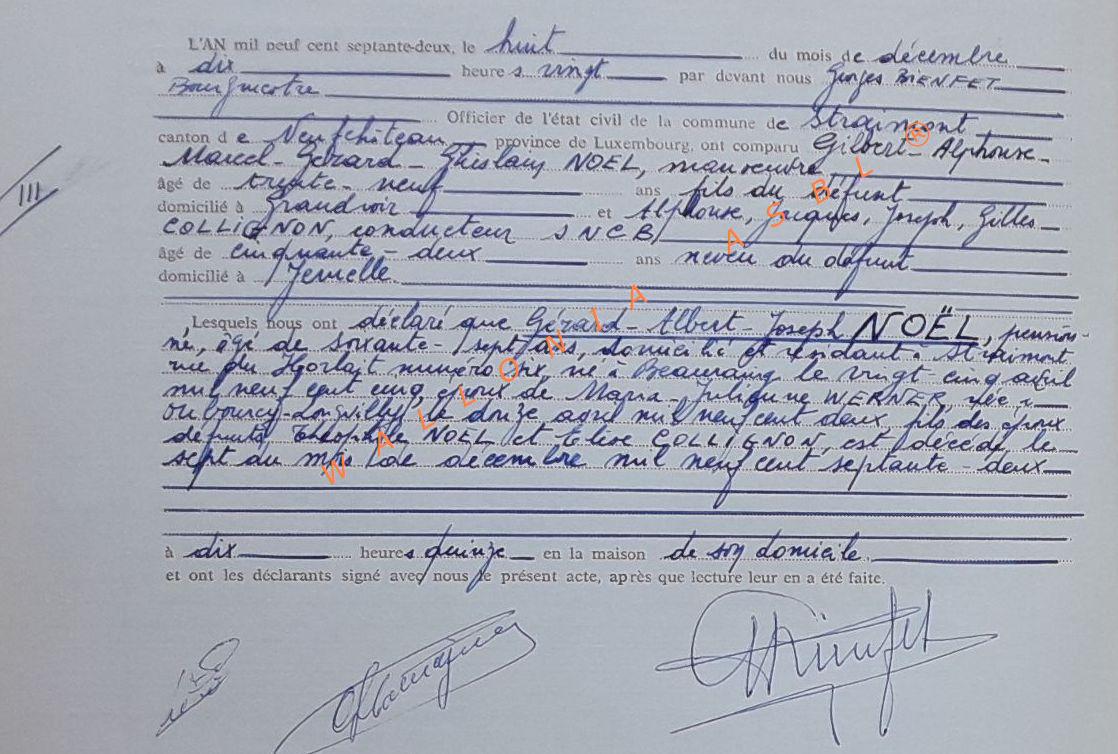 L'AN mil neuf cent septante-deux, le huit du mois de décembre
à dix heures vingt par devant nous Georges BIENFET
Bourgmestre
Officier de l'état civil de la commune de Straimont
canton de Neufchâteau province de Luxembourg, ont comparu Gilbert-Alphonse-
Marcel-Gérard-Ghislain NOEL, manoeuvre
III
âgé de trente-neuf ans fils du défunt
domicilié à Grandvoir et Alphonse, Jacques, Joseph, Gilles
COLLIGNON, conducteur SNCB,
âgé de cinquante-deux ans neveu du défunt
domicilié à Jemelle
Lesquels nous ont déclaré que Gérard-Albert-Joseph NOËL, pension-
né, âgé de soixante-sept ans, domicilié et résidant à Straimont
rue du numéro né à Beauraing le vingt cinq avril
mil neuf cent cinq, époux de Maria-Julienne WERNER, née à
Oubourcy-Longvilly le douze avril mil neuf cent deux, fils des époux
défunts Théophile NOEL et Elise COLLIGNON, est décédé le
sept du mois de décembre mil neuf cent septante-deux
à dix heures quinze en la maison de son domicile
et ont les déclarants signé avec nous le présent acte, après que lecture leur en a été faite.
WALLONIA ASBL ®